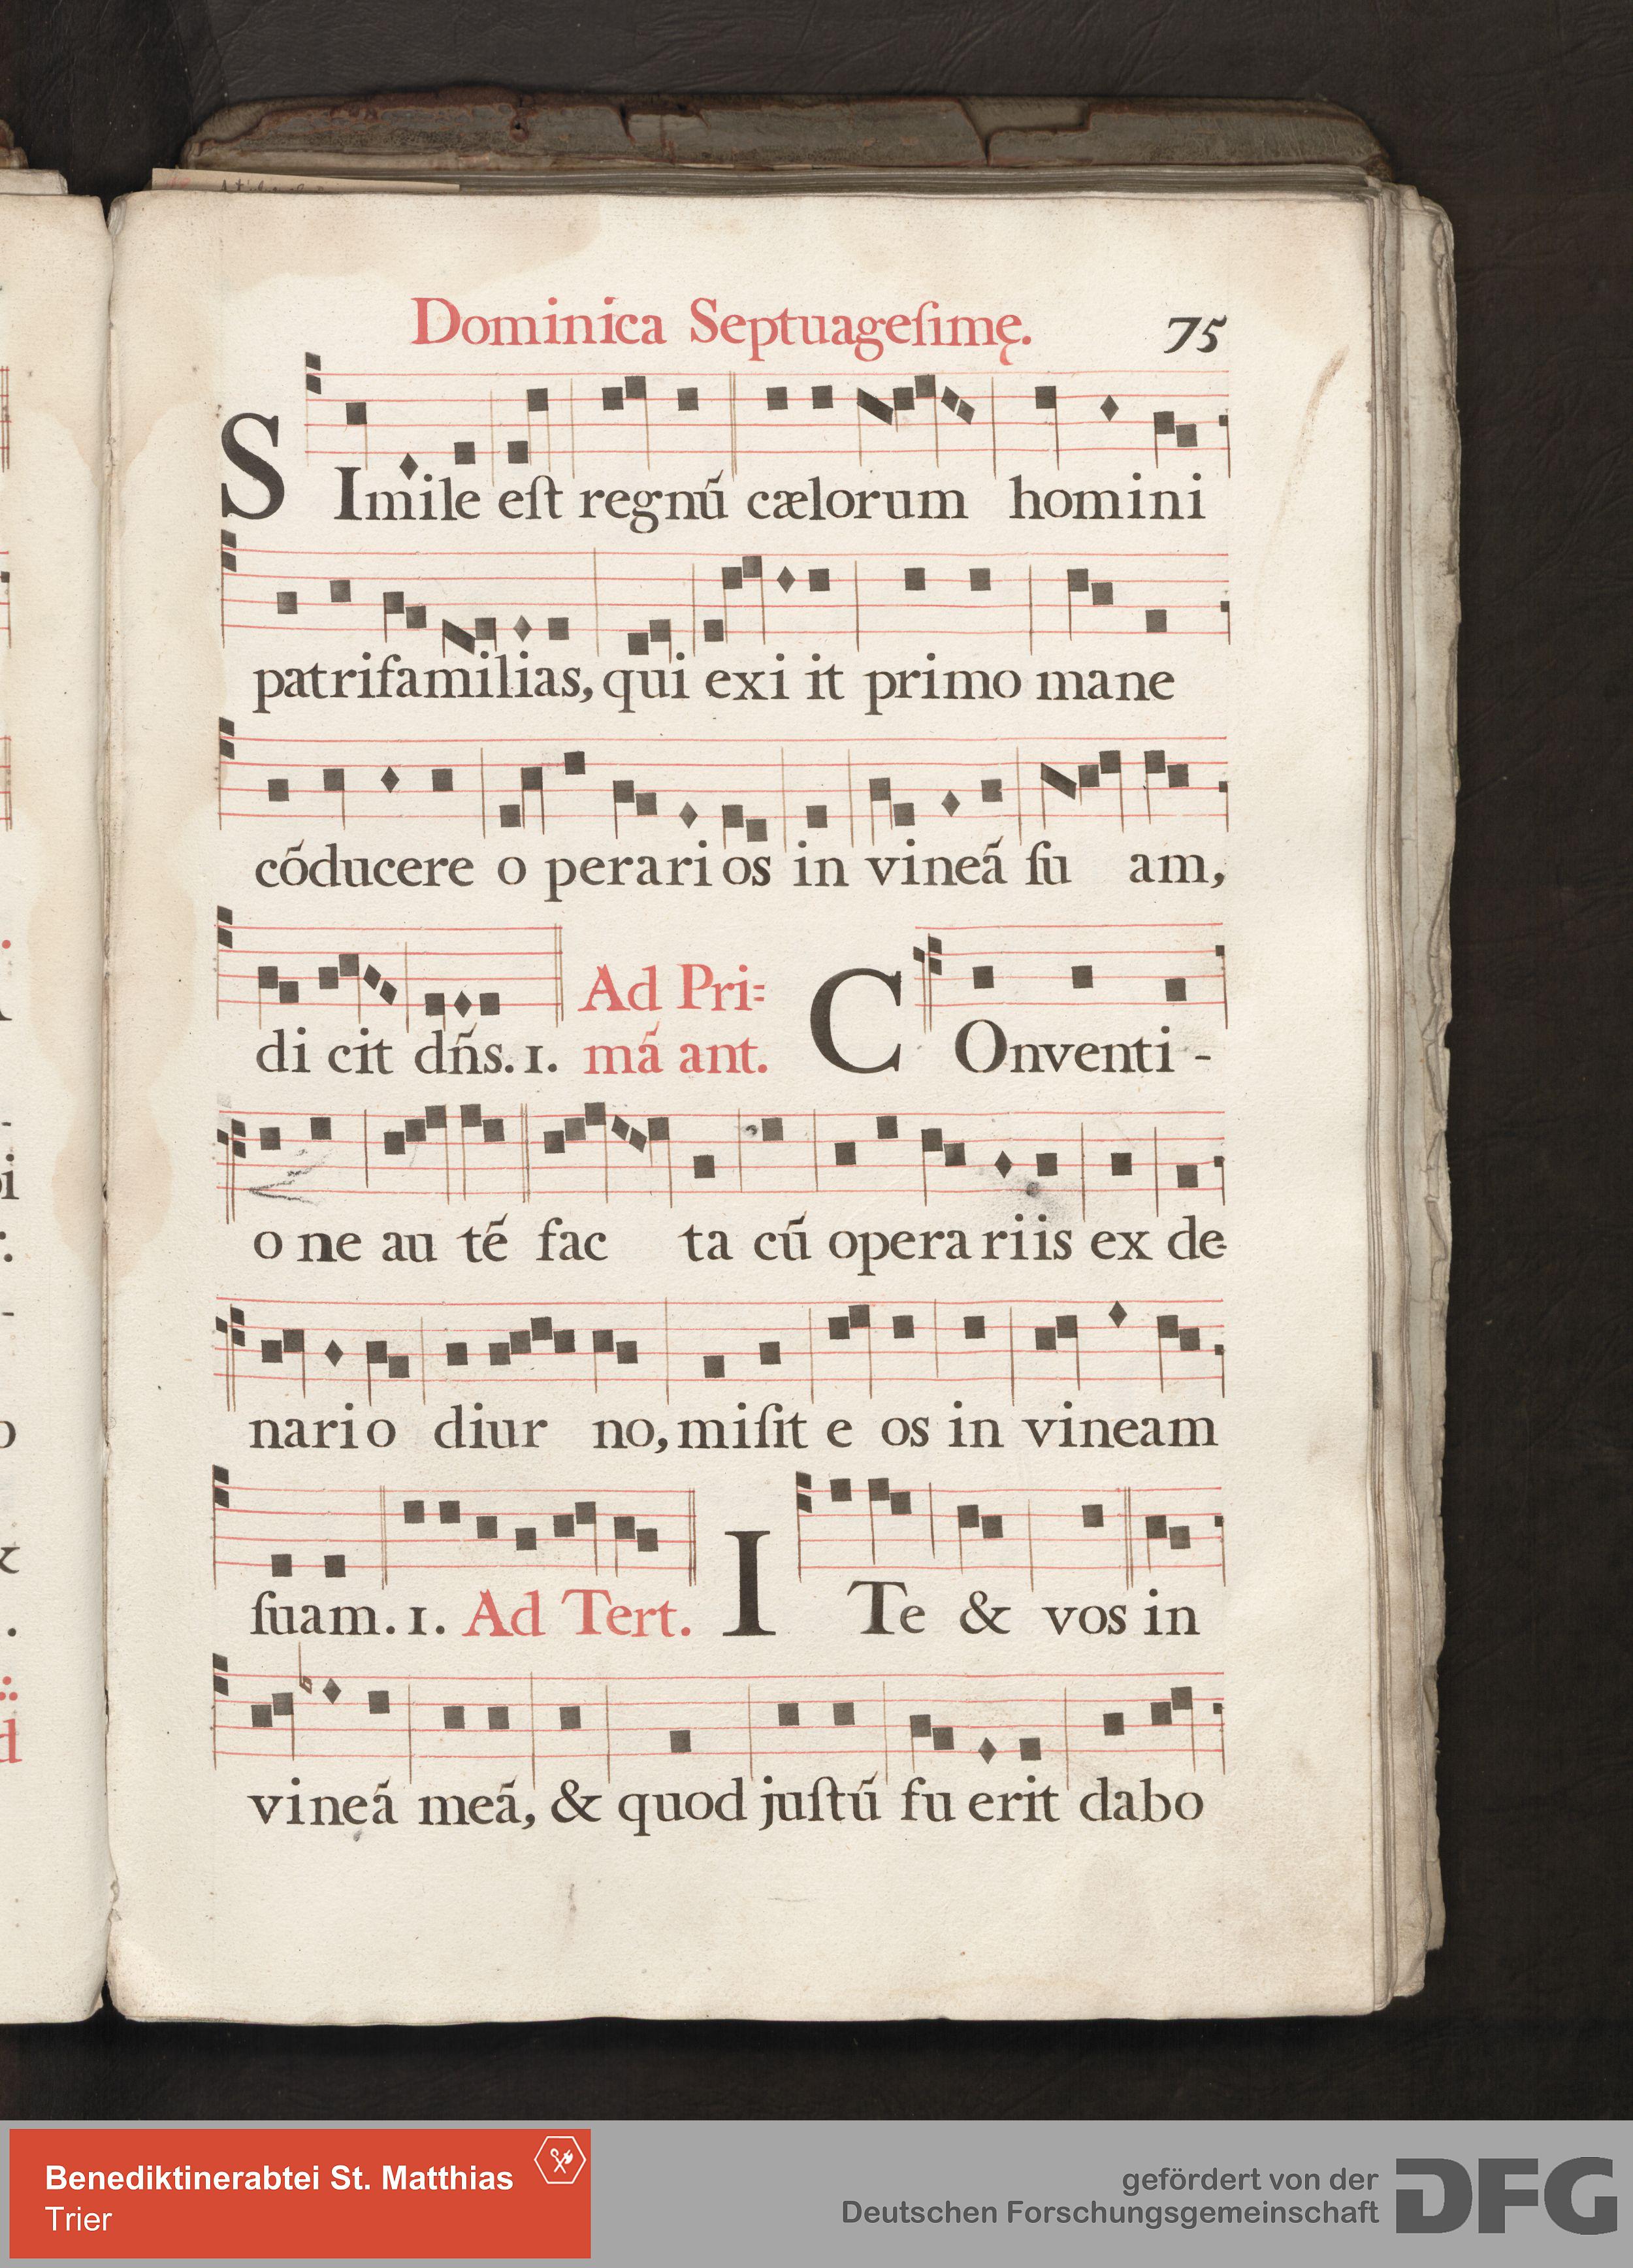 Dominica Septuageſimę. 75
SImile eſt regnú cælorum homini
patrifamilias, qui exi it primo mane
códucere o perari os in vineá ſu am,
di cit dn̄s. 1. Ad Pri= Conventi -
má ant.
o ne au té fac ta cú opera riis ex de=
nario diur no, miſit e os in vineam
ſuam. 1. Ad Tert. ITe & vos in
vineá meá, & quod juſtú fu erit dabo
Benediktinerabtei St. Matthias
Trier
gefördert von der
Deutschen Forschungsgemeinschaft
DFG